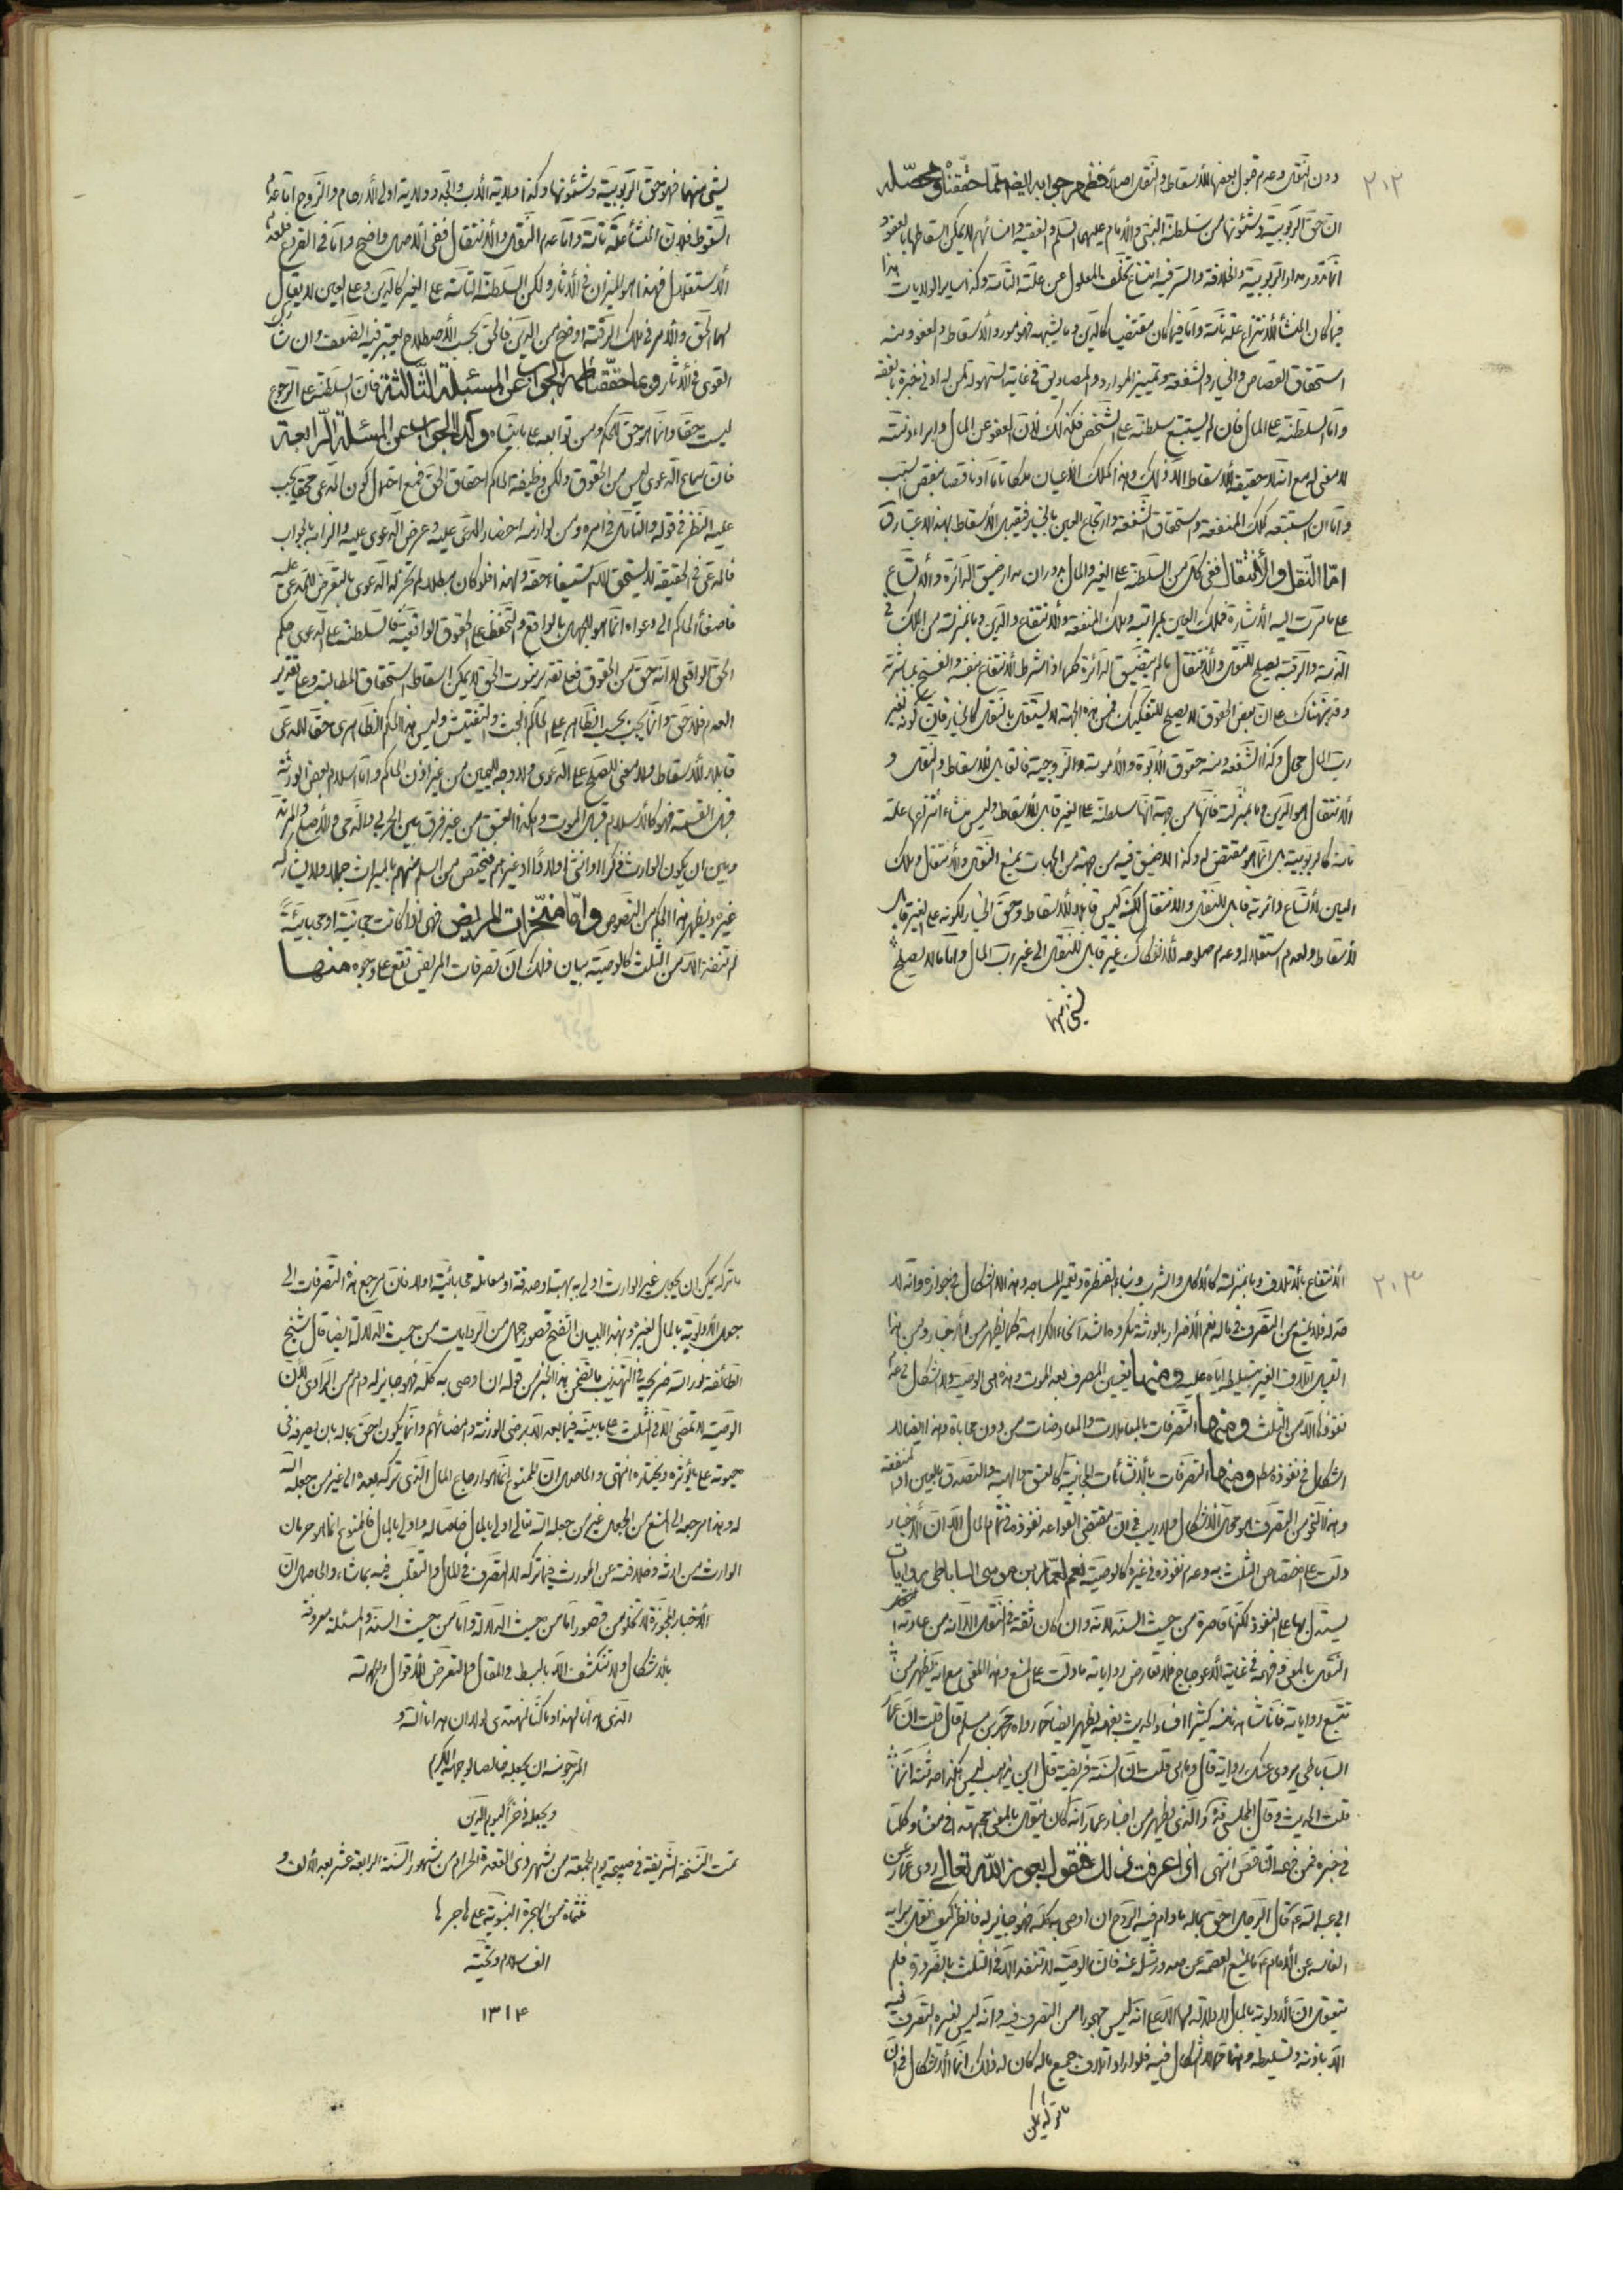 ٢٠٢
دون النقل وعدم قبول بعضها للأسقاط والنقل اصلا فظهر جوابه ايضا مما حققناه ومحصّله
انّ حق الربوبيّة وشئونها من سلطنة النبي والأمام عليهما السلم والفقيه وامنائهم لا يمكن اسقاطها بالعفو و
انما تدور مدار الربوبيّة والخلافة والسر فيه امتناع تخلّف المعلول عن علته التامة وكذا ساير الولايات هذا
فيما كان المنشأ للأنتزاع علة تامة وامّا فيما كان مقتضيا كالدين وما يشبهه فهو مورد الأسقاط والعفو ومنه
استحقاق القصاص والخيار والشفعة وتمييز الموارد والمصاديق في غاية السهولة لمن له ادنى خبرة بالفقه
وامّا السلطنة على المال فان لم يستتبع سلطنة على الشخص فكذلك لأن العفو عن المال وابراء ذمته
لا معنى له مع انه لا حقيقة للأسقاط الا ذلك وهذا كملك الأعيان ملكا تاما او ناقصا بنقص السبب
وامّا ان استتبعه كملك المنفعة واستحقاق الشفعة وارتجاع العين بالخيار فيقبل الأسقاط بهذا الاعتبار
امّا النقل والأنتقال ففي كل من السلطنة على الغير والمال يدوران مدار ضيق الدائرة والأتساع
على ما مرت اليه الأشارة فملك العين بمراتبه وملك المنفعة والأنتفاع والدين وما بمنزلته من الملك في
الذمة والرقبة يصلح للنقل والأنتقال ما لم يتضيق الدائرة كلها اذا اشترط الأنتفاع بنفسه والفسخ بمباشرته
وقد نبهناك على ان بعض الحقوق لا يصلح للتفكيك فمن هذه الجهة لا يستقل بالنقل كالخيار فان كونه لغير
رب المال محال وكذا الشفعة ومنه حقوق الأبوة والأمومة والزوجية فالقابل للأسقاط والنقل و
الأنتقال هو الدين وما بمنزلته فانها من جهة انها سلطنة على الغير قابل للأسقاط وليس منشأ انتزاعها علة
تامة كالربوبية بل انما هو مقتض له وكذا لا ضيق فيه من جهة من الجهات يمنع النقل والأنتقال وملك
العين لأتساع دائرته قابل للنقل والانتقال لكنه ليس قابلا للأسقاط وحق الخيار لكونه على الغير قابل
للأسقاط ولعدم استقلاله وعدم صلوحه للأنفكاك غير قابل للنقل الى غير رب المال وامّا ما لا يصلح
لشئ منها
لشئ منهما فهو حق الربوبية وشئونها وكذا ولاية الأب والجد وولاية اولى الأرحام والزوج امّا عدم
السقوط فلان المنشأ علة تامة وامّا عدم النقل والأنتقال ففي الأصل واضح وامّا في الفرع فلعدم
الأستقلال فهذا هو الميزان في الأثار ولكن السلطنة التامة على الغير كالدين وعلى العين لا يقال
لهما الحق والأمر في ملك الرقبة اوضح من الدين فالحق بحسب الأصطلاح يعتبر فيه الضعف وان شارك
القوى في الأثار وممّا حققنا ظهر الجواب عن المسئلة الثالثة فان السلطنة على الرجوع
ليست حقا وانما هو حق للحكم ومن توابعه على ما بيناه وكذا الجواب عن المسئلة الرابعة
فان سماع الدعوى ليس من الحقوق ولكن وظيفة الحاكم احقاق الحق فمع احتمال كون المدعي محقا يجب
عليه النظر في قوله والتأمل في امره ومن لوازمه احضار المدعى عليه وعرض الدعوى عليه والزامه بالجواب
فالمدعي في الحقيقة لا يستحق الا استيفاء حقه ولهذا فلو كان مبطلا لم تجز له الدعوى بالتعرض للمدعى عليه
فاصغاء الحاكم الى دعواه انما هو للجهل بالواقع والتحفظ على الحقوق الواقعية فالسلطنة على الدعوى حكم
الحق الواقعي لا انه حق من الحقوق فعلى تقدير ثبوت الحق لا يمكن اسقاط استحقاق المطالبة وعلى تقدير
العدم فلا حق وانما يجب بحسب الظاهر على الحاكم البحث والتفتيش وليس هذا الحكم الظاهري حقا للمدعي
قابلا للأسقاط ولا معنى للصلح على الدعوى ولا وجه لليمين من غير اذن الحاكم وامّا اسلام بعض الورثة
قبل القسمة فهو كالأسلام قبل الموت وهكذا العتق من غير فرق بين الحربي والذمي والأصلي والمرتد
وبين ان يكون الوارث ذكرا او انثى اولادًا او غيرهم فيختص من اسلم منهم بالميراث جملا ولا يشاركه
غيره ويظهر هذا الحكم من النصوص وامّا منجّزات المريض فهي اذا كانت مجانية او محاباتيةً
لم تنفذ الا من الثلث كالوصية بيان ذلك ان تصرفات المريض تقع على وجوه منها
٢٠٣
الأنتفاع بالأتلاف وما بمنزلته كالأكل والشرب وبناء القنطرة وتعمير المساجد وهذا لا اشكال في جوازه وانه لا
حد له فلا يمنع من التصرف في ماله نعم الأضرار بالورثة مكروه اشد انحاء الكراهة كما يظهر من الأخبار ومن هذا
القبيل اتلاف الغير بتسليطه اياه عليه ومنها تعيين المصرف بعد الموت وهذه هي الوصية ولا اشكال في عدم
نفوذها الا من الثلث ومنها التصرفات بالمعاملات والمعاوضات من دون محاباة وهذا ايضا لا
اشكال في نفوذه مطلقا ومنها التصرفات بالأنشائات المجانية كالعتق والهبة والتصدق بالعين او المنفعة
وهذا النحو من التصرف هو محل الأشكال ولا ريب في ان مقتضى القواعد نفوذه في تمام المال الا ان الأخبار
دلت على اختصاص الثلث به وعدم نفوذه في غيره كالوصية نعم لعمار بن موسى الساباطي روايات
يستدل بها على النفوذ لكنها قاصرة من حيث السند لانه وان كان ثقة في النقل الا انه من عادته
النقل بالمعنى وفهمه في غاية الأعوجاج فلا تعارض رواياته ما دلت على المنع وهذا المعنى مع انه يظهر من
تتبع رواياته فانا شاهدنا منه كثيرا افساد الحديث بفهمه يظهر ايضا مما رواه محمد بن مسلم قال قلت ان عمار
الساباطي يروي عنك رواية قال وما هي قلت ان السنة فريضة قال اين يذهب ليس هكذا حدثته انما
قلت الحديث وقال المجلسي قده والذي يظهر من اخبار عمار انه كان ينقل بالمعنى مجتهدا في معناه وكلما
في خبره فمن فهمه الناقص انتهى اذا عرفت ذلك فنقول بعون الله تعالى روى عمار عن
ابي عبد الله ع قال الرجل احق بماله ما دام فيه الروح ان اوصى به كله فهو جايز له فانظر كيف نقل برأيه
الفاسد عن الأمام ع ما يمنع العصمة عن صدور مثله عنه فان الوصية لا تنفذ الا في الثلث بالضرورة فلم
يتعقل ان الأولوية بالمال لا دلالة لها الا على انه ليس محجورا من التصرف فيه وانه ليس لغيره التصرف فيه
الا باذنه وتسليطه وهذا مما لا اشكال فيه فلو اراد اتلاف جميع ماله كان له ذلك انما الأشكال في ان
ما تركه يمكن
ما تركه يمكن ان يجعل غير الوارث اولى به بهبة او صدقة او معاملة محاباتية او لا فان مرجع هذه التصرفات الى
جعل الأولوية بالمال لغيره وبهذا البيان اتضح قصور جملة من الروايات من حيث الدلالة ايضا قال شيخ
الطائفة نور الله ضريحه في التهذيب ما تضمن هذا الخبر من قوله ان اوصى به كله فهو جايز له وهم من الراوي لان
الوصية لا تمضى الا في الثلث على ما بينه فيما بعد الا برضى الورثة وامضائهم وانما يكون احق بماله بان يصرفه في
حيوته على ما يؤثره ويختاره انتهى والحاصل ان الممنوع انما هو ارجاع المال الذي تركه بعده الى غير من جعله الله
له وهذا مرجعه الى المنع من الجعل غير من جعله الله تعالى اولى بالمال خاصا له واولى بالمال فالممنوع انما هو حرمان
الوارث من ارثه وخلافته عن المورث فيما تركه لا التصرف في المال والتقلب فيه بما شاء والحاصل ان
الأخبار المجوزة لا تخلو من قصور امّا من حيث الدلالة وامّا من حيث السند والمسئلة معروفة
بالأشكال ولا تنكشف الا بالبسط في المقال والتعرض للأقوال
الذي هدانا لهذا وما كنا لنهتدي لولا ان هدانا الله و
المرجو منه ان يجعله خالصا لوجهه الكريم
ويجعله ذخرًا ليوم الدين
تمت النسخة الشريفة في صبيحة يوم الجمعة من شهر ذي القعدة الحرام من شهور السنة الرابعة عشر بعد الألف و
ثلثمائة من الهجرة النبوية على هاجرها
الف سلام وتحية
١٣١۴